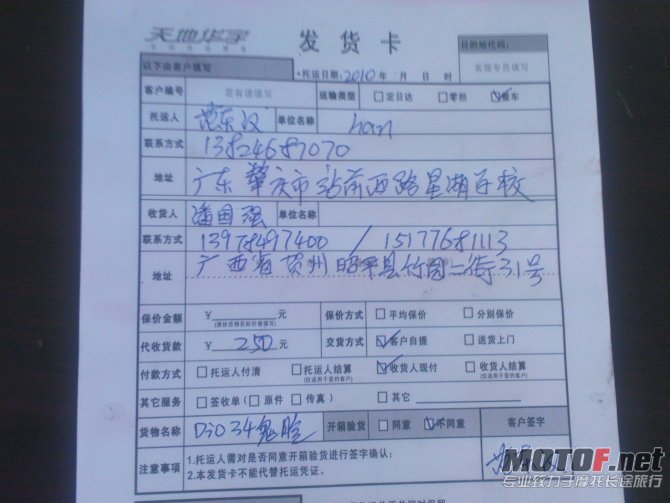 天地华宇
发货卡
目的地代码：
以下由客户填写
托运日期：2010年 月 日 时
客服专员填写
客户编号 若有请填写 运输类型 □定日达 □零担 ☑整车
托运人 范东汉 单位名称 han
联系方式 13824687070
地址 广东肇庆市站前西路星湖学校
收货人 潘国强 单位名称
联系方式 13978497400 / 15177681113
地址 广西省贺州昭平县竹园二街31号
保价金额 ￥ 元 (请按货物实际价值填写) 保价方式 □平均保价 □分别保价
代收货款 ￥ 250 元 交货方式 ☑客户自提 □送货上门
付款方式 □托运人付清 □托运人结算 (仅适用于签约客户) ☑收货人现付 □收货人结算 (仅适用于签约客户)
其它服务 □签收单(□原件 □传真) □其它
货物名称 Dio34鬼脸 开箱验货 □同意 ☑不同意 客户签字
注意事项 1.托运人需对是否同意开箱验货进行签字确认；
2.本发货卡不能代替托运凭证。
MOTOF.net
专业致力于摩托长途旅行